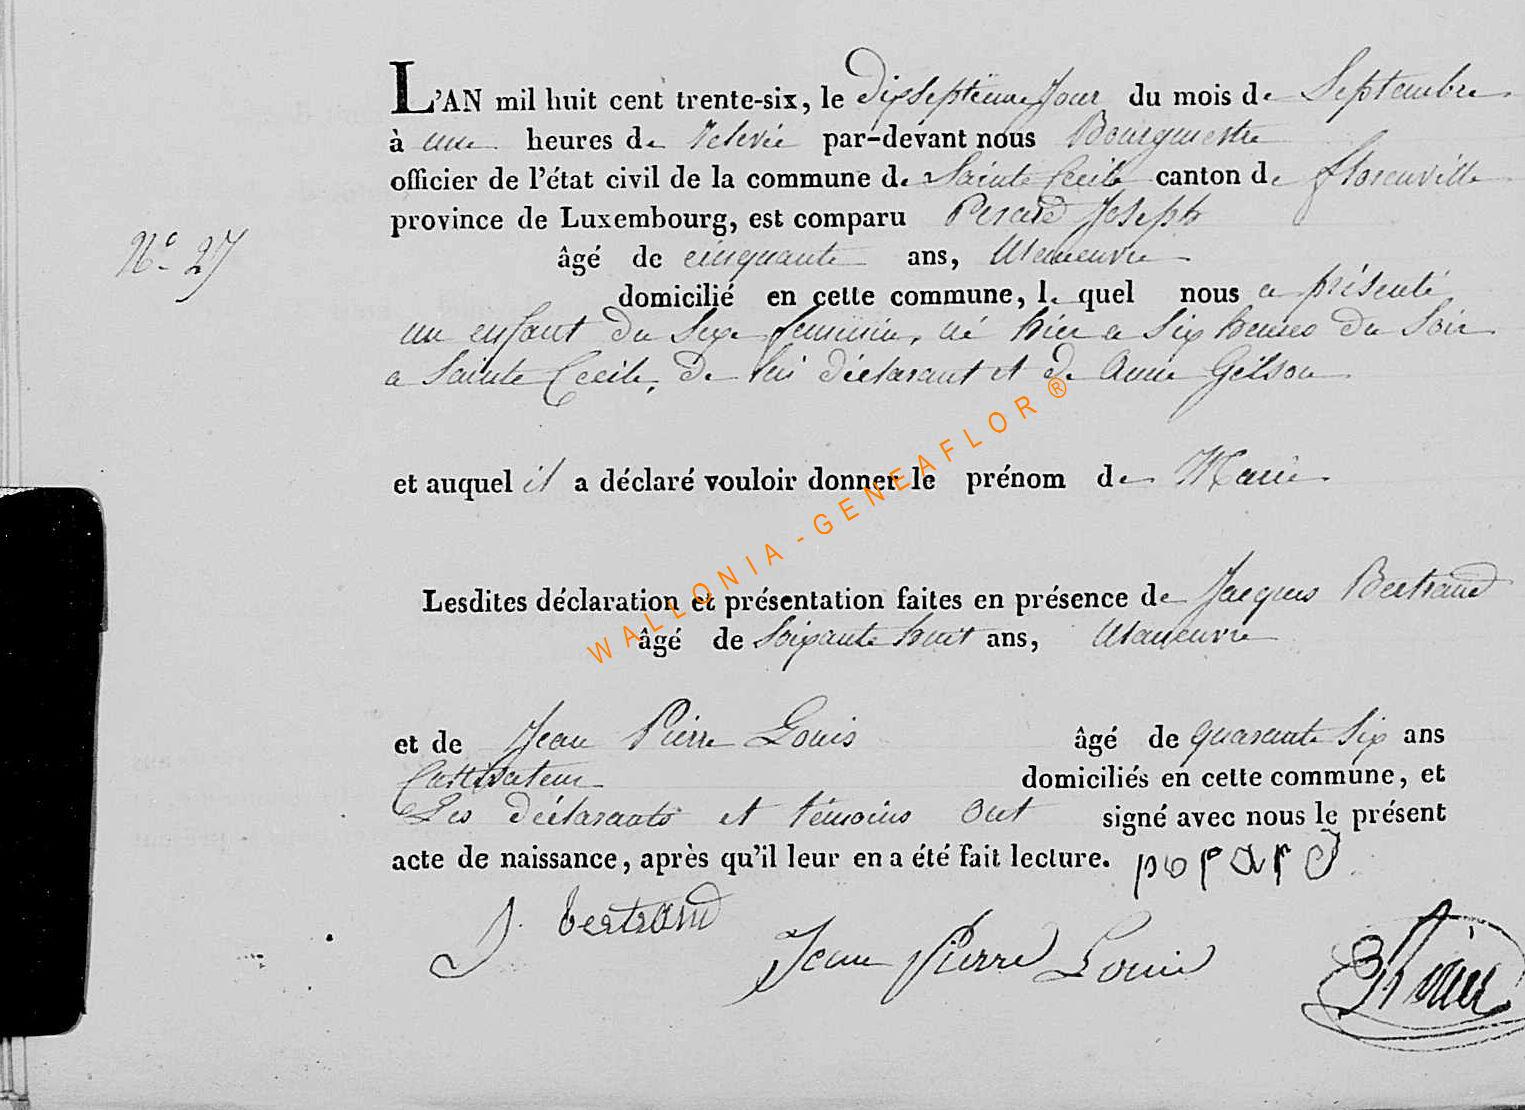 L'AN mil huit cent trente-six, le dixseptieme jour du mois de Septembre
à une heures de relevée par-devant nous Bourgmestre
officier de l'état civil de la commune de Sainte Cecile canton de florenville
province de Luxembourg, est comparu Perard Joseph
N° 27
âgé de cinquante ans, Maneuvre
domicilié en cette commune, le quel nous a présenté
un enfant du sexe feminin, né hier a six heures du soir
a Sainte Cecile, de lui déclarant et de Anne Gilson
et auquel il a déclaré vouloir donner le prénom de Marie
WALLONIA - GENEAFLOR ®
Lesdites déclaration et présentation faites en présence de Jacques Bertrand
âgé de soixante huit ans, Maneuvre
et de Jean Pierre Louis âgé de quarante six ans
Cultivateur domiciliés en cette commune, et
Les déclarants et témoins ont signé avec nous le présent
acte de naissance, après qu'il leur en a été fait lecture. perard
J. bertrand
Jean Pierre Louis